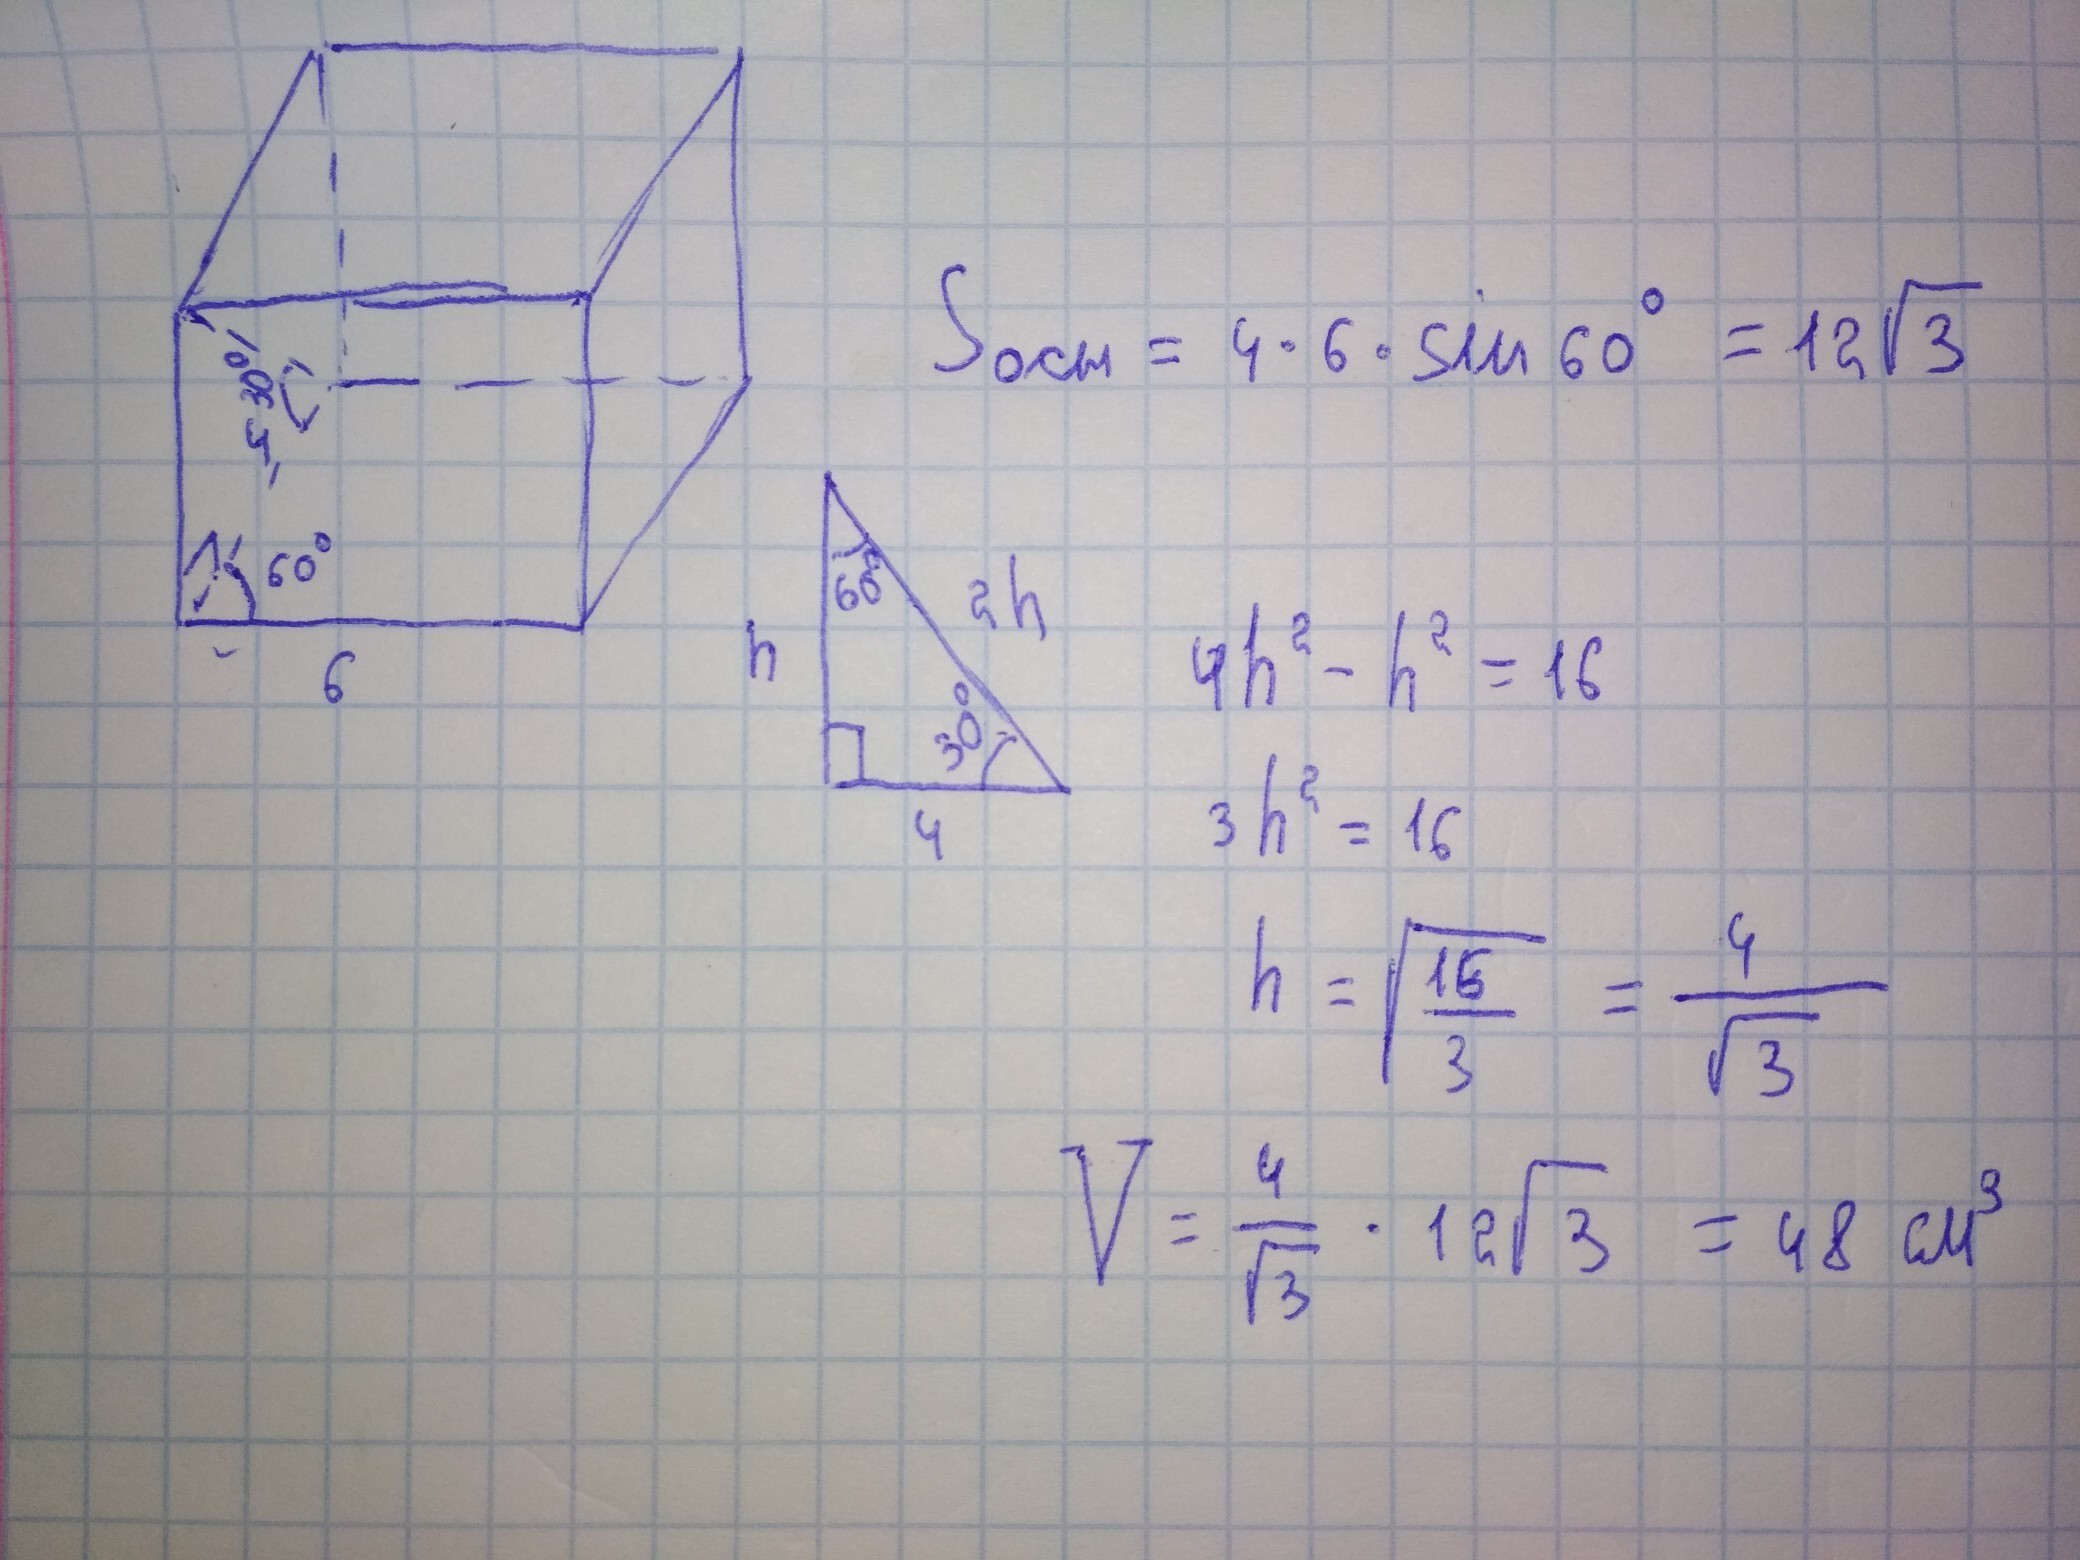 30°
4
60°
6
Sосн = 4 · 6 · sin 60° = 12√3
60°
2h
h
30°
4
4h² - h² = 16
3h² = 16
h = √(16/3) = 4/√3
V = 4/√3 · 12√3 = 48 см³